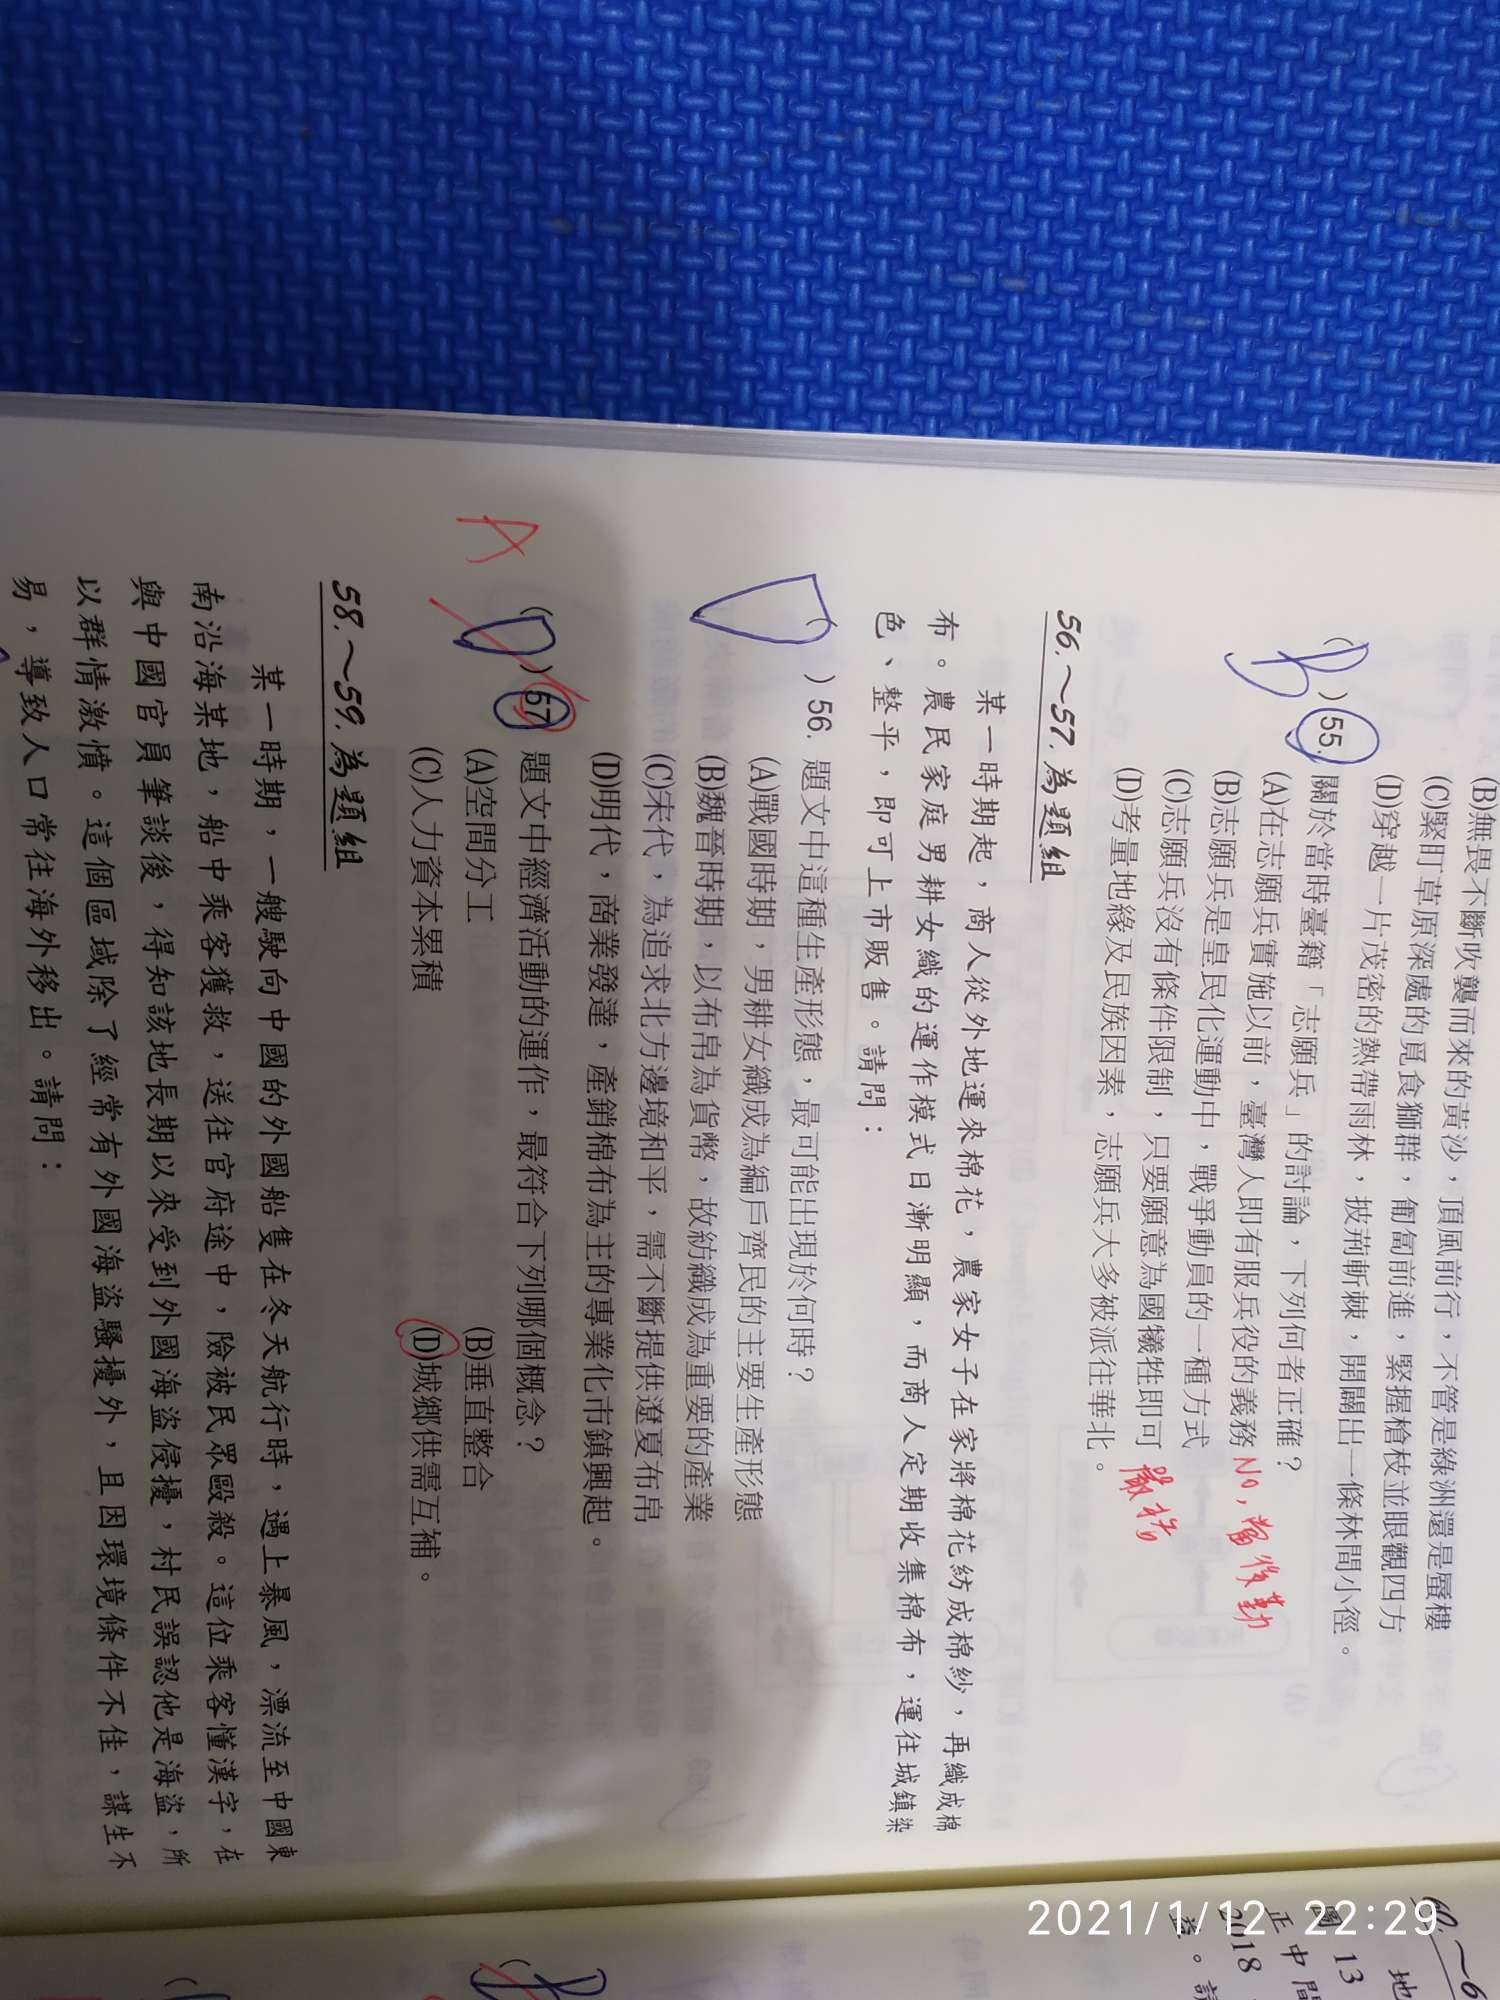 (B)無畏不斷吹襲而來的黃沙，頂風前行，不管是綠洲還是蜃樓
(C)緊盯草原深處的覓食獅群，匍匐前進，緊握槍枝並眼觀四方
(D)穿越一片茂密的熱帶雨林，披荊斬棘，開闢出一條林間小徑。
(B)55. 關於當時臺籍「志願兵」的討論，下列何者正確？
(A)在志願兵實施以前，臺灣人即有服兵役的義務 NO, 當後勤
(B)志願兵是皇民化運動中，戰爭動員的一種方式
(C)志願兵沒有條件限制，只要願意為國犧牲即可 嚴格
(D)考量地緣及民族因素，志願兵大多被派往華北。
56.～57.為題組
某一時期起，商人從外地運來棉花，農家女子在家將棉花紡成棉紗，再織成棉
布。農民家庭男耕女織的運作模式日漸明顯，而商人定期收集棉布，運往城鎮染
色、整平，即可上市販售。請問：
(D)56. 題文中這種生產形態，最可能出現於何時？
(A)戰國時期，男耕女織成為編戶齊民的主要生產形態
(B)魏晉時期，以布帛為貨幣，故紡織成為重要的產業
(C)宋代，為追求北方邊境和平，需不斷提供遼夏布帛
(D)明代，商業發達，產銷棉布為主的專業化市鎮興起。
A (D)57. 題文中經濟活動的運作，最符合下列哪個概念？
(A)空間分工 (B)垂直整合
(C)人力資本累積 (D)城鄉供需互補。
58.～59.為題組
某一時期，一艘駛向中國的外國船隻在冬天航行時，遇上暴風，漂流至中國東
南沿海某地，船中乘客獲救，送往官府途中，險被民眾毆殺。這位乘客懂漢字，在
與中國官員筆談後，得知該地長期以來受到外國海盜侵擾，村民誤認他是海盜，所
以群情激憤。這個區域除了經常有外國海盜騷擾外，且因環境條件不佳，謀生不
易，導致人口常往海外移出。請問：
60.～6
地
圖 13
正中間
2018
2021/1/12 22:29